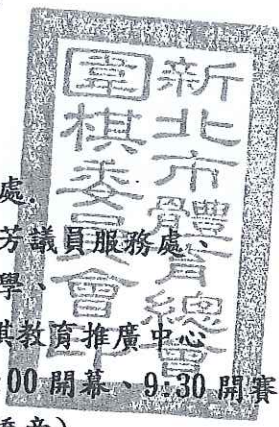 新北市體育總會
圍棋委員會印
處、
芳議員服務處、
學、
棋教育推廣中心
00 開幕、9:30 開賽